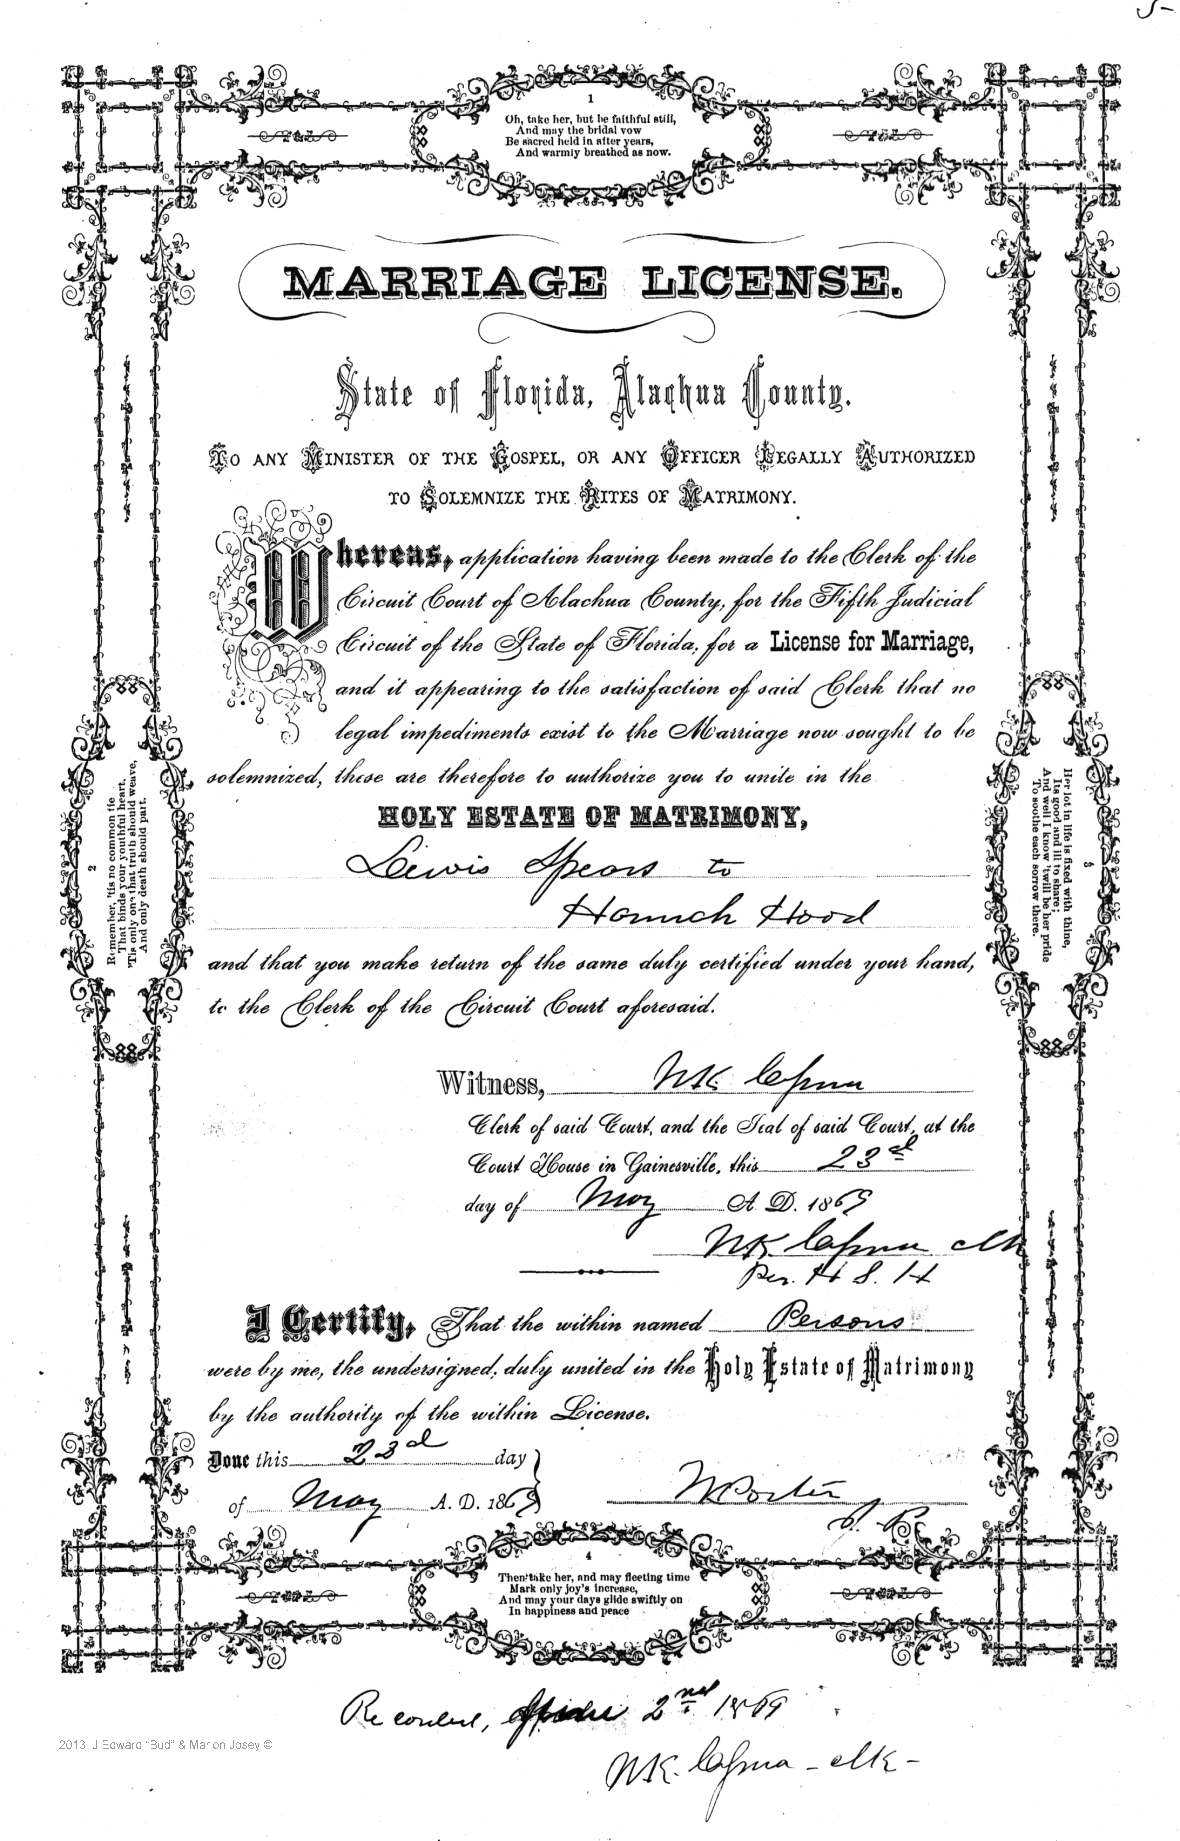 1
Oh, take her, but be faithful still,
And may the bridal vow
Be sacred held in after years,
And warmly breathed as now.
MARRIAGE LICENSE.
State of Florida, Alachua County.
To any Minister of the Gospel, or any Officer Legally Authorized
to Solemnize the Rites of Matrimony.
Whereas, application having been made to the Clerk of the
Circuit Court of Alachua County, for the Fifth Judicial
Circuit of the State of Florida, for a License for Marriage,
and it appearing to the satisfaction of said Clerk that no
legal impediments exist to the Marriage now sought to be
solemnized, these are therefore to authorize you to unite in the
HOLY ESTATE OF MATRIMONY,
Lewis Spears to
Hannah Hood
and that you make return of the same duly certified under your hand,
to the Clerk of the Circuit Court aforesaid.
Witness,
Clerk of said Court, and the Seal of said Court, at the
Court House in Gainesville, this 23d
day of May A. D. 1869
Per. H S. H
I Certify, That the within named Persons
were by me, the undersigned, duly united in the Holy Estate of Matrimony
by the authority of the within License.
Done this 23d day
of May A. D. 1869
W Porter
J. P.
2
Remember, 'tis no common tie
That binds your youthful heart,
'Tis only one that truth should weave,
And only death should part.
3
Her lot in life is fixed with thine,
Its good and ill to share;
And well I know 'twill be her pride
To soothe each sorrow there.
4
Then take her, and may fleeting time
Mark only joy's increase,
And may your days glide swiftly on
In happiness and peace
Recorded, 2nd 1869
2013 J Edward "Bud" & Marion Josey ©